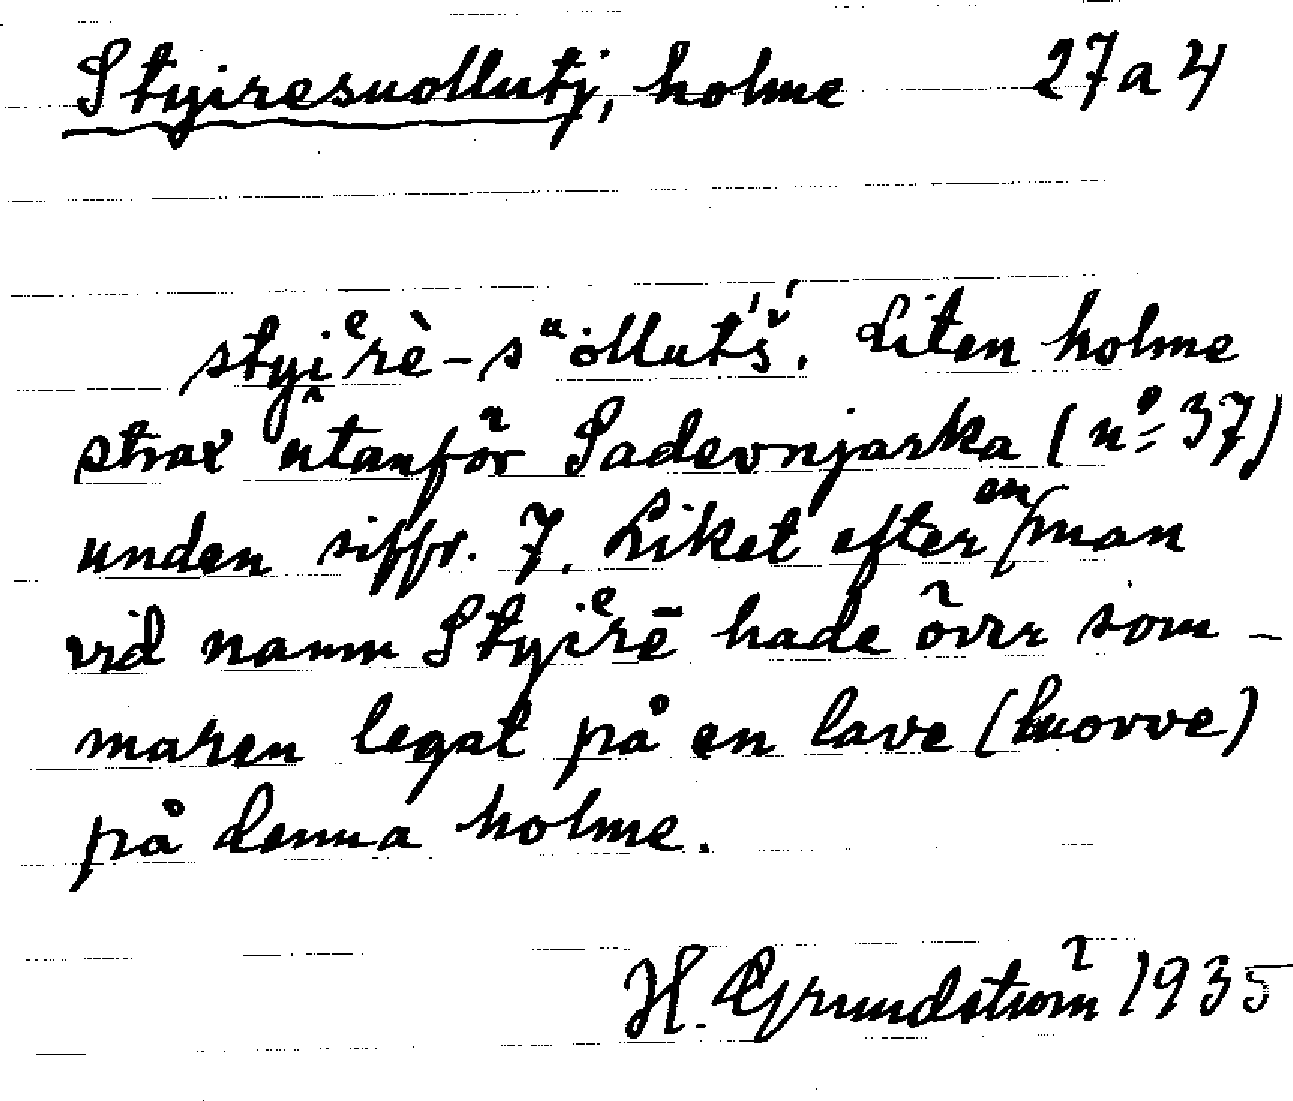 Styiresuollutj, holme 27a4
styi̭ᵉrè-sᵘöllut'š́. Liten holme
strax utanför Sadevnjarka (nº 37)
under siffr. 7. Liket efter en man
vid namn Styiᵉrē hade över som-
maren legat på en lave (luovve)
på denna holme.
H. Grundström 1935